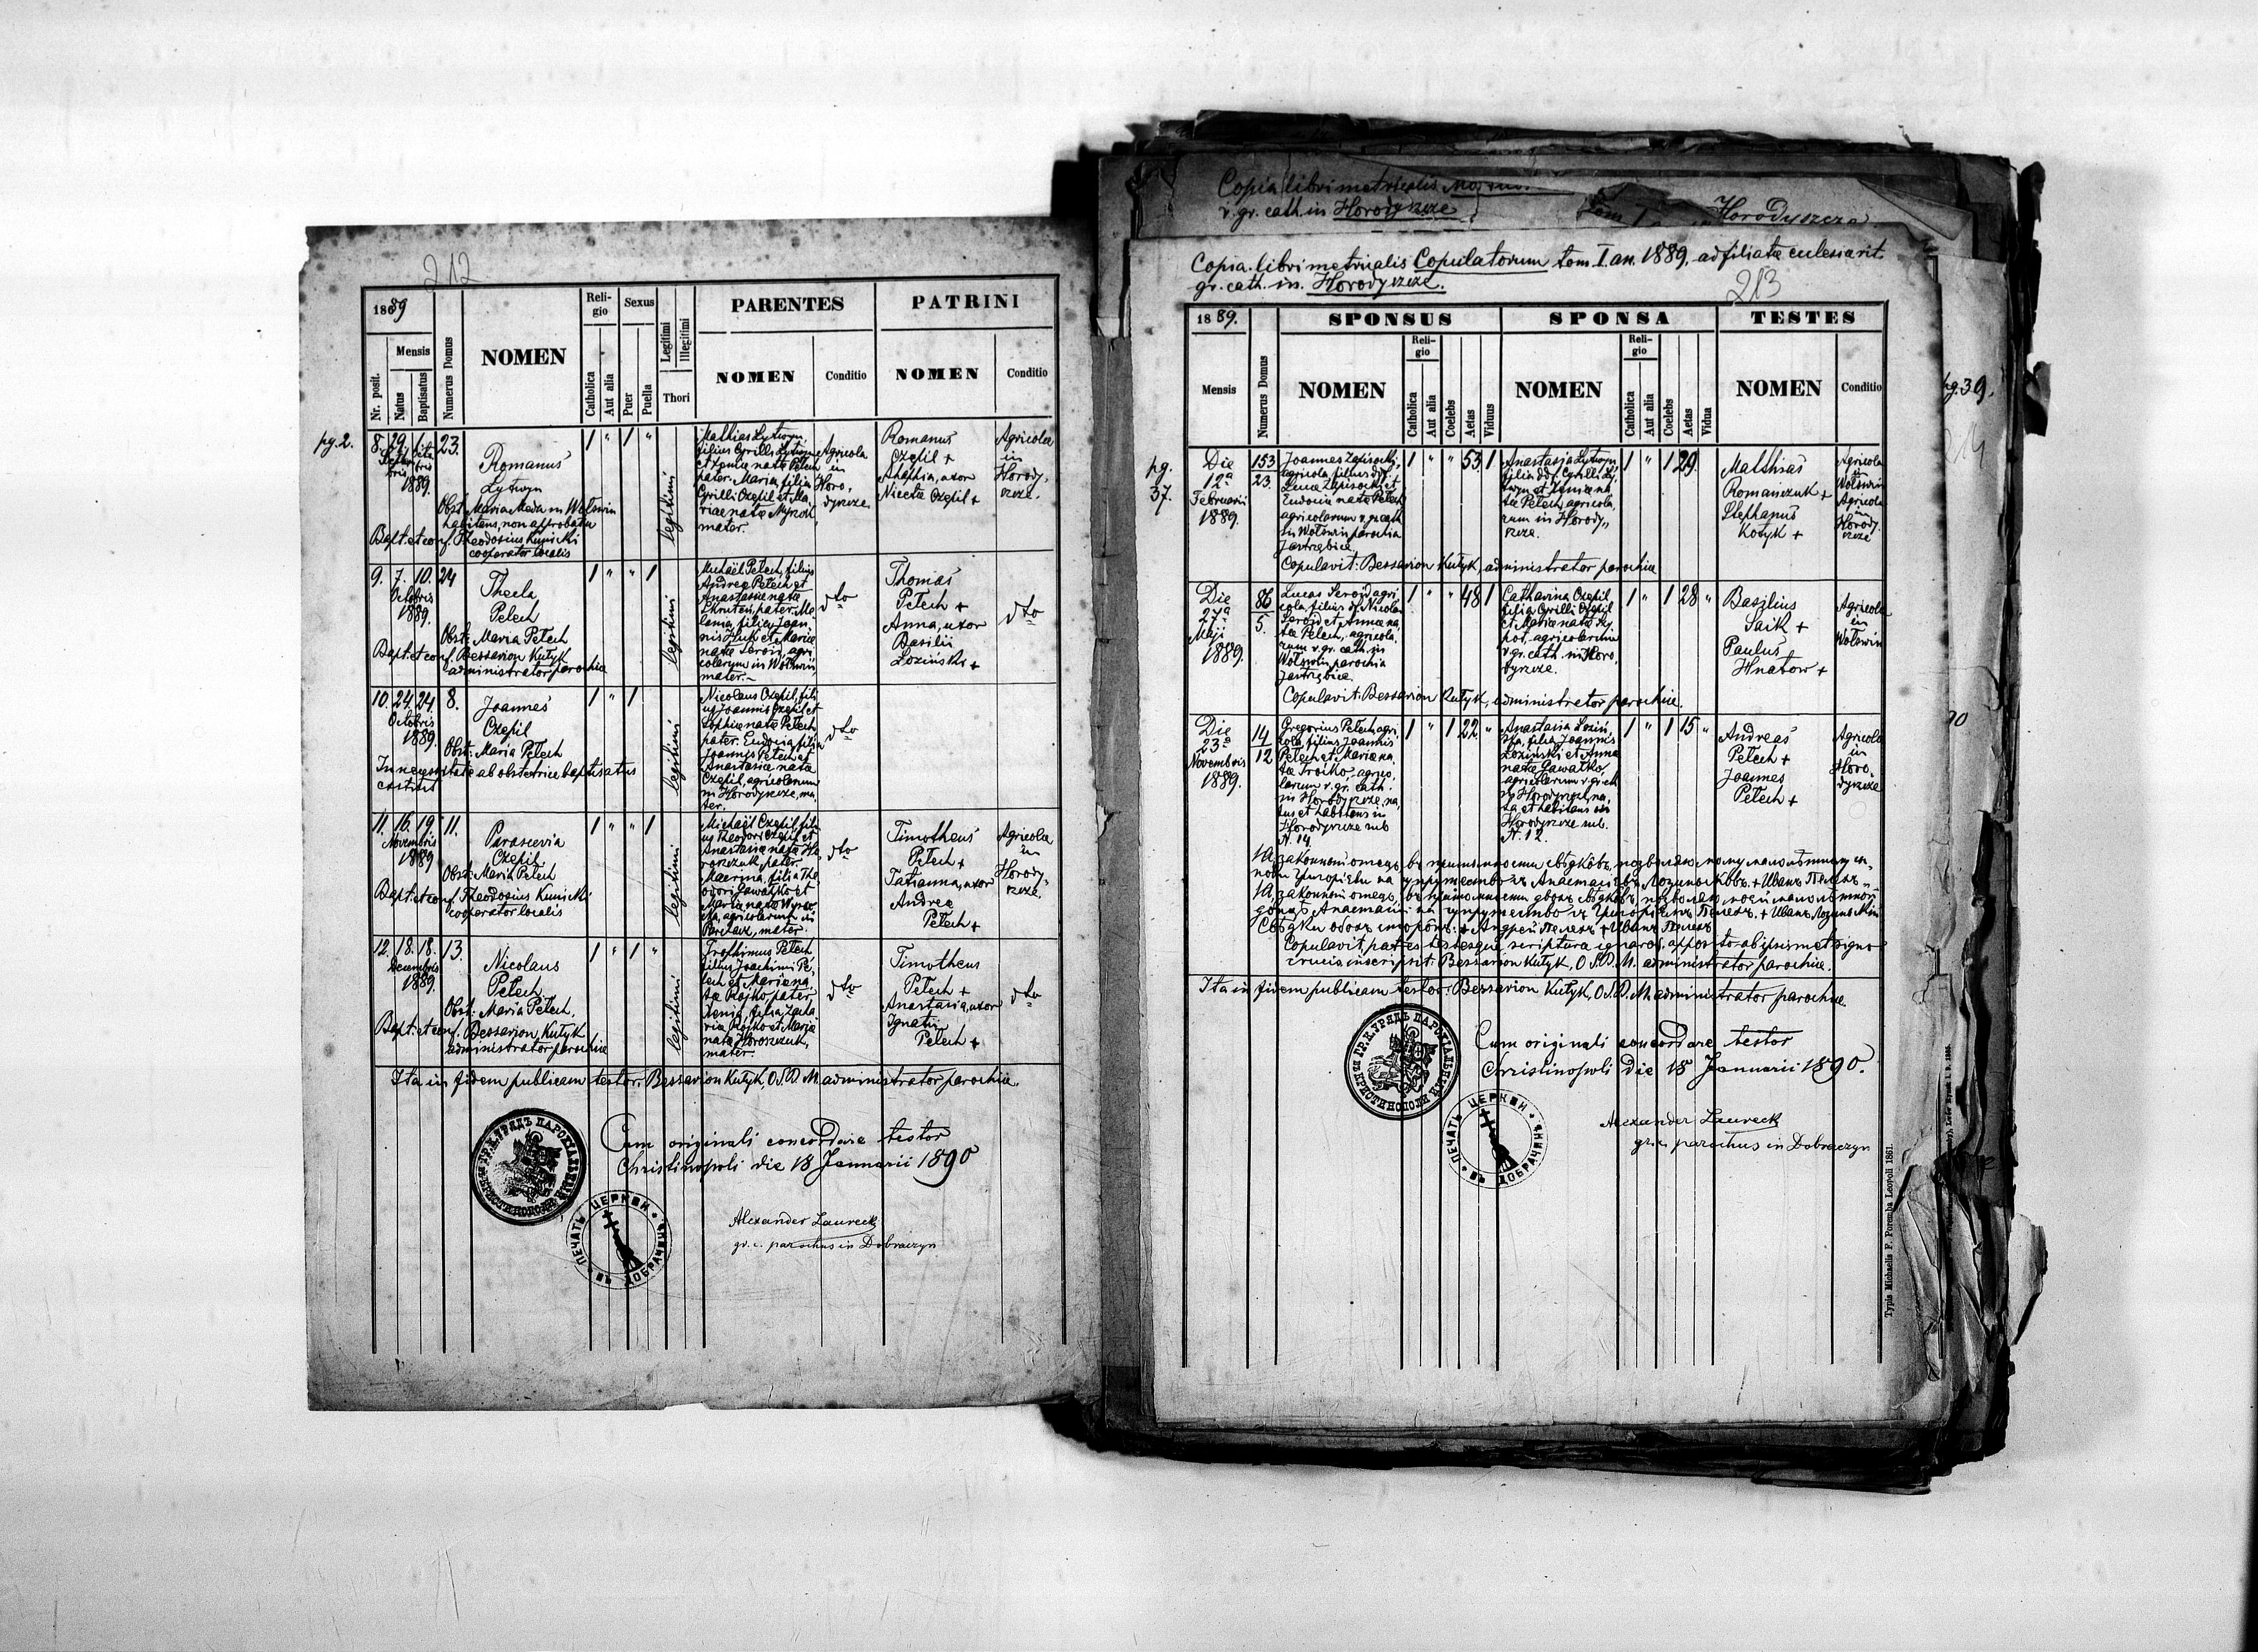 212
1889
Nr. posit.
Mensis
Natus
Baptisatus
Numerus Domus
NOMEN
Religio
Catholica
Aut alia
Sexus
Puer
Puella
Legitimi
Illegitimi
Thori
PARENTES
NOMEN
Conditio
PATRINI
NOMEN
Conditio
pg. 2.
8. 29. 1. 23.
1889.
Romanus
Lytwyn
habitans, non approbata
Bapt. et conf. Theodosius Kunicki
cooperator localis
1 " 1 "
legitimi
Mathias Lytwyn,
filius Cyrilli Lytwyn
et Xeniae nata Petech
pater. Maria, filia
Cyrilli Czepil et Ma,
riae nata
mater.
Agricola
in
Horo,
dyszcze
Romanus
Czepil +
uxor
Nicetae Czepil +
Agricolae
in
Horody,
szcze.
9. 7. 10. 24
Octobris
1889.
Thecla
Petech
Obst: Maria Petech
Bapt. et conf. Bessarion Kutyk
administrator parochiae
1 " " 1
legitimi
Michaël Petech, filius
Andreae Petech et
Anastasiae nata
pater. Me,
lania, filia Joan,
nis Huk et Mariae
nata Seroid, agri,
colarum in Wołswin
mater.
dto
Thomas
Petech +
Anna, uxor
Basilii
Łoziński +
dto
10. 24. 24. 8.
Octobris
1889.
Joannes
Czepil
Obst: Maria Petech
In necessitate ab obstetrice baptisatus
1 " 1
legitimi
Nicolaus Czepil, fili,
us Joannis Czepil et
Sophiae nata Petech,
pater. Eudocia, filia
Joannis Petech et
Anastasiae nata
Czepil, agricolarum
in Horodyszcze, ma,
ter.
dto
11. 16. 19. 11.
Novembris
1889
Parascevia
Czepil
Obst: Maria Petech
Bapt. et conf. Theodosius Kunicki
cooperator localis
1 " " 1
legitimi
Michaël Czepil, fili,
us Theodori Czepil et
Anastasiae nata Ho,
roszczuk, pater
Macrina, filia The,
odori Gawałko et
Mariae nata
agricolarum in
mater.
dto
Timotheus
Petech +
Tatianna, uxor
Andreae
Petech +
Agricolae
in
Horody,
szcze.
12. 18. 18. 13.
Decembris
1889.
Nicolaus
Petech
Obst: Maria Petech,
Bapt. et conf. Bessarion Kutyk
administrator parochiae
1 " 1 "
legitimi
Trophimus Petech
filius Joachimi Pe,
tech et Mariae na,
ta Rojko, pater.
Xenia, filia Zacha,
riae Rojko et Maria
nata Horoszczuk,
mater.
dto
Timotheus
Petech +
Anastasia, uxor
Ignatii
Petech +
dto
Ita in fidem publicam testor: Bessarion Kutyk, O.S.B.M. administrator parochiae.
Cum originali concordare testor
Christinopoli die 18 Januarii 1890
Alexander Laureck
gr. c. parochus in Dobraczyn
ПЕЧАТЬ ЦЕРКВИ ВЪ ДОБРАЧИНѢ
Copia libri metricalis
r. gr. cath. in Horodyszcze
Tom I Horodyszcze
Copia libri metricalis Copulatorum tom. I. an. 1889. ad filiatae eclesia rit.
gr. cath. in Horodyszcze.
213
1889.
Mensis
Numerus Domus
SPONSUS
NOMEN
Religio
Catholica
Aut alia
Coelebs
Aetas
Viduus
SPONSA
NOMEN
Religio
Catholica
Aut alia
Coelebs
Aetas
Vidua
TESTES
NOMEN
Conditio
pg. 39.
pg.
37.
Die
12a
Februarii
1889.
153
23.
Joannes Zapisocki,
agricola, filius ddf.
Lucae Zapisocki et
Eudociae nata Petech
agricolarum r. gr. cath.
in Wołswin parochia
Jastrzębice.
1 " " 53 1
Anastasia Lytwyn
filia ddf. Cyrilli Ly,
twyn et Xeniae na,
ta Petech, agricola,
rum in Horody,
szcze.
1 " 1 29.
Matthias
Romańczuk +
Stephanus
Kotyk +
Agricola
in
Wołswin
Agricola
in
Horody,
szcze
Copulavit: Bessarion Kutyk, administrator parochiae
Die
27a
Maji
1889.
86
5.
Lucas Seroid agri,
cola, filius df. Nicolai
Seroid et Annae na,
ta Petech, agricola,
rum r. gr. cath. in
Wołswin parochia
Jastrzębice.
1 " " 48 1
Catharina Czepil
filia Cyrilli Czepil
et Mariae nata
agricolarum
r. gr. cath. in Horo,
dyszcze.
1 " 1 28 "
Basilius
Saik +
Paulus
Hnatow +
Agricolae
in
Wołswin
Copulavit: Bessarion Kutyk, administrator parochiae.
Die
23a
Novembris
1889.
14
12
Gregorius Petech agri,
cola, filius Joannis
Petech et Mariae na,
ta Trojko, agrico,
larum r. gr. cath.
in Horodyszcze, na,
tus et habitans in
Horodyszcze sub
N. 14.
1 " 1 22 "
Anastasia Łoziń,
ska, filia Joannis
Łoziński et Anna
nata Gawałko,
agricolarum r. gr. cth
in Horodyszcze, na,
ta et habitans in
Horodyszcze sub.
N. 12.
1 " 1 15 "
Andreas
Petech +
Joannes
Petech +
Agricolae
in
Horo,
dyszcze
Copulavit, patres testesque scriptura ignaros, apposito ab ipsismet signo
crucis inscripsit: Bessarion Kutyk, O.S.B.M. administrator parochiae.
Ita in fidem publicam testor: Bessarion Kutyk, O.S.B.M. administrator parochiae
Cum originali concordare testor
Christinopoli die 18 Januarii 1890.
Alexander Laureck
gr. c. parochus in Dobraczyn
ПЕЧАТЬ ЦЕРКВИ ВЪ ДОБРАЧИНѢ
Typis Michaelis F. Poremba Leopoli 1861.